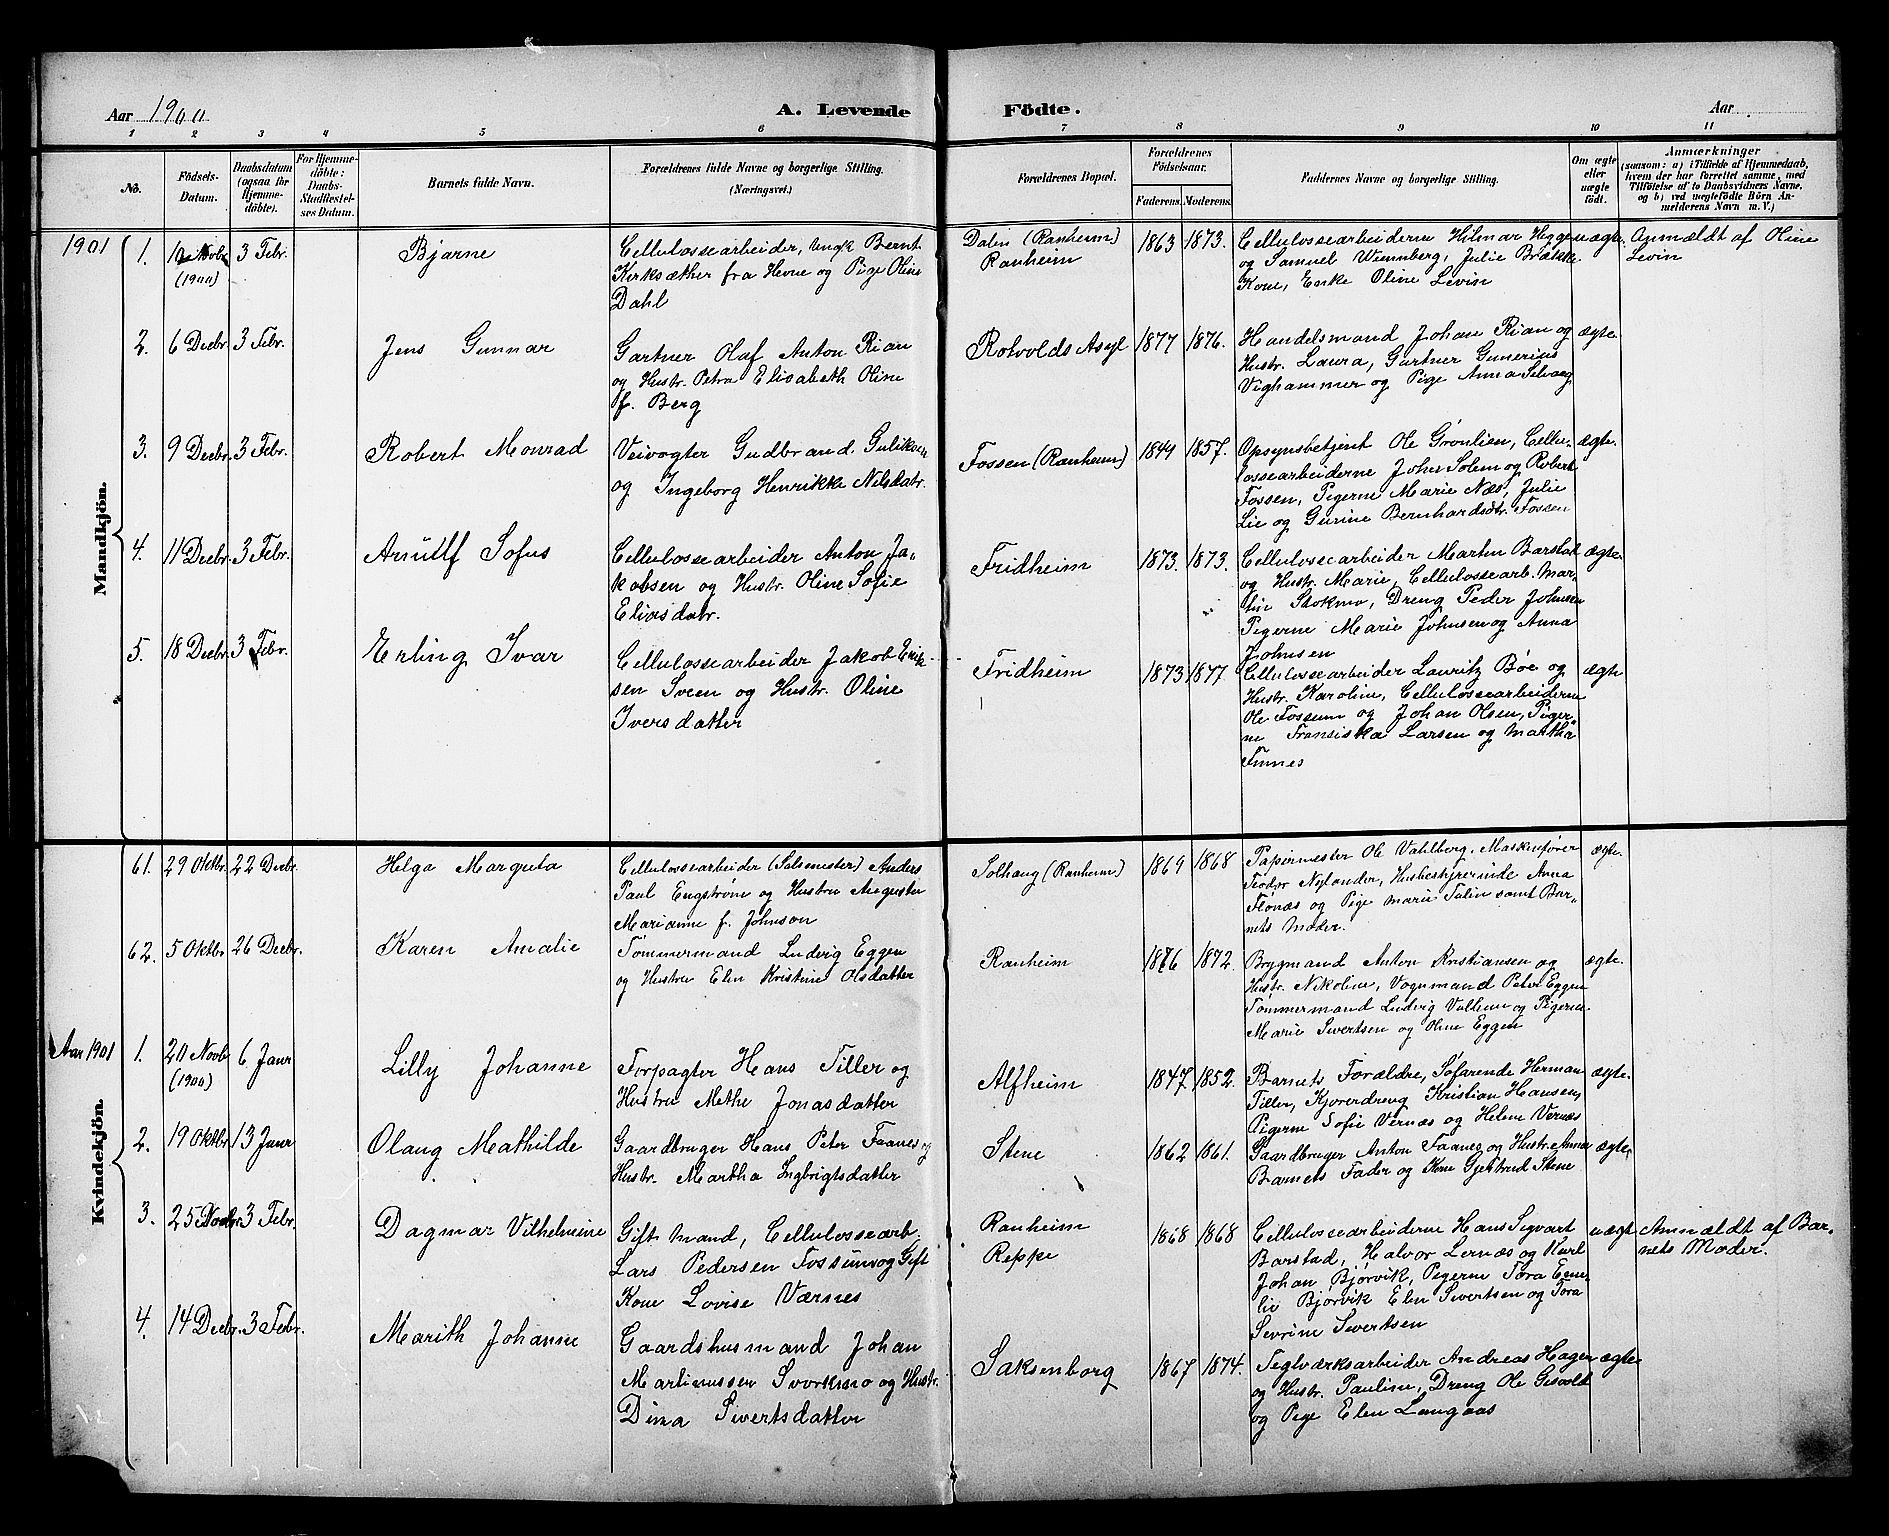 Aar 1900
A. Levende
Födte.
Aar
1 2 3 4 5 6 7 8 9 10 11
No.
Födsels-
Datum.
Daabsdatum
(ogsaa for
Hjemme-
döbte).
For Hjemme-
döbte:
Daabs-
Stadfæstel-
ses Datum.
Barnets fulde Navn.
Forældrenes fulde Navne og borgerlige Stilling.
(Næringsvei.)
Forældrenes Bopæl.
Forældrenes
Fødselsaar.
Faderens. Moderens.
Faddernes Navne og borgerlige Stilling.
Om ægte
eller
uægte
født.
Anmærkninger
(saasom: a) i Tilfælde af Hjemmedaab,
hvem der har forrettet samme, med
Tilföielse af to Daabsvidners Navne,
og b) ved uægtefödte Börn An-
melderens Navn m. V.)
Mandkjön.
1901
1. 10 Novbr (1900) 3 Febr.
Bjarne
Cellulossearbeider, Ungk Bernt
Kirksæther fra Hevne og Pige Oline
Dahl
Dalen (Ranheim)
Ranheim
1863 1873.
Cellulossearbeiderne Hilmar Heggen
og Samuel Wiennberg, Julie Brække
Kone, Enke Oline Levin
uægte.
Anmældt af Oline
Levin
2. 6 Decbr. 3 Febr.
Jens Gunnar
Gartner Olaf Anton Rian
og Hustr. Petra Elisabeth Oline
f. Berg
Rotvolds Asyl
1877 1876.
Handelsmand Johan Rian og
Hustr. Laura, Gartner Gunerius
Vighammer og Pige Anna Selvaag
ægte.
3. 9 Decbr. 3 Febr.
Robert Monrad
Veivogter Gudbrand Guliksen
og Ingeborg Henrikke Nilsdatr.
Fossen (Ranheim)
1844 1857.
Opsynsbetjent Ole Grønlien, Cellu-
lossearbeiderne John Solem og Robert
Fossen, Pigerne Marie Næs, Julie
Lie og Gurine Bernhardsdtr. Fossen
ægte.
4. 11 Decbr. 3 Febr.
Arnülf Sofus
Cellulossearbeider Anton Ja-
kobsen og Hustr. Oline Sofie
Eliasdatr.
Fridheim
1873. 1873.
Cellulossearbeider Martin Barstad
og Hustr. Marie, Cellulossearb. Mar-
tin Stokmo, Dreng Peder Johnsen
Pigerne Marie Johnsen og Anna
Johnsen
ægte.
5. 18 Decbr. 3 Febr.
Erling Ivar
Cellulossearbeider Jakob Erik-
sen Sveen og Hustr. Oline
Iversdatter
Fridheim
1873 1877
Cellulossearbeider Lauritz Bøe og
Hustr. Karoline, Cellulossearbeiderne
Ole Fossum og Johan Olsen, Piger-
ne Fransiska Larsen og Martha
Finnes
ægte
Kvindekjön.
61. 29 Oktbr. 22 Decbr.
Helga Margreta
Cellulossearbeider (Salsmester) Anders
Paul Engstrøm og Hustru Augusta
Marianne f. Johnson
Solhaug (Ranheim)
1869 1868
Papirmester Ole Vahlberg. Maskinfører
Teodor Nylander, Husbestyrerinde Anna
Flønæs og Pige Marie Tulin samt Bar-
nets Moder.
ægte.
62. 5 Oktbr 26 Decbr.
Karen Amalie
Tømmermand Ludvig Eggen
og Hustru Elen Kristine Olsdatter
Ranheim
1876 1872.
Brygmand Anton Kristiansen og
Hustr. Nikoline, Vognmand Peter Eggen
Tømmermand Ludvig Vullum og Pigerne
Marie Sivertsen og Oline Eggen
ægte.
Aar 1901
1. 20 Novb (1900) 6 Janr
Lilly Johanne
Forpagter Hans Tiller og
Hustru Methe Jonasdatter
Alfheim
1847 1852.
Barnets Forældre, Søfarende Herman
Tiller, Kjøreredreng Kristian Hansen,
Pigerne Sofie Vernæs og Helene Vernæs
ægte.
2. 19 Oktbr 13 Janr
Olaug Mathilde
Gaardbruger Hans Peter Faanes og
Hustr. Martha Ingbrigtsdatter
Stene
1862 1861.
Gaardbruger Anton Faanes og Hustr. Anna
Barnets Fader og Kone Gjertrud Stene
ægte.
3. 25 Novbr 3 Febr.
Dagmar Vilhelmine
Gift Mand, Cellulossearb.
Lars Pedersen Fossum og Gift
Kone Lovise Værnes
Ranheim
Reppe
1868 1868
Cellulossearbeiderne Hans Sigvart
Barstad, Halvor Lernæs og Karl
Johan Bjørvik, Pigerne Tora Eme-
lie Bjørvik Elen Sivertsen og Tora
Sevrine Sivertsen
uægte
Anmældt af Bar-
nets Moder.
4. 14 Decbr. 3 Febr.
Marith Johanne
Gaardshusmand Johan
Martinussen Svorkmo og Hustr.
Dina Sivertsdatter
Saksenborg
1867 1874.
Teglværksarbeider Andreas Hagen
og Hustr. Pauline, Dreng Ole
og Pige Elen Langaas
ægte.